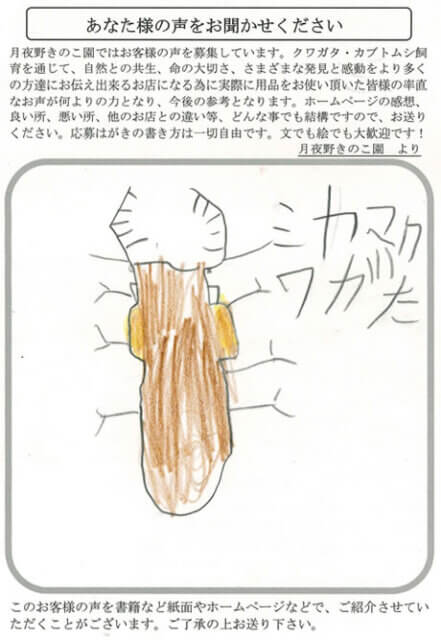 あなた様の声をお聞かせください
月夜野きのこ園ではお客様の声を募集しています。クワガタ・カブトムシ飼
育を通じて、自然との共生、命の大切さ、さまざまな発見と感動をより多く
の方達にお伝え出来るお店になる為に実際に用品をお使い頂いた皆様の率直
なお声が何よりの力となり、今後の参考となります。ホームページの感想、
良い所、悪い所、他のお店との違い等、どんな事でも結構ですので、お送り
ください。応募はがきの書き方は一切自由です。文でも絵でも大歓迎です！
月夜野きのこ園　より
ミヤマク
ワガた
このお客様の声を書籍など紙面やホームページなどで、ご紹介させていた
だくことがございます。ご了承の上お送り下さい。